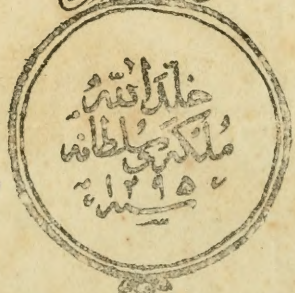 خلد الله
ملكه وسلطانه
سنه ١٢٩٥